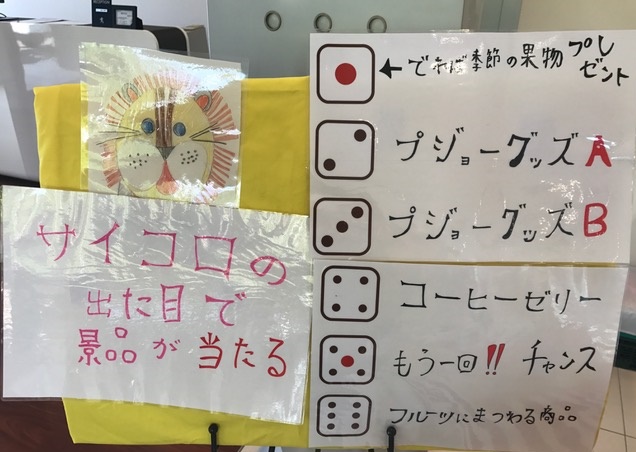 サイコロの
出た目で
景品が当たる
←でれば季節の果物プレゼント
プジョーグッズA
プジョーグッズB
コーヒーゼリー
もう一回!!チャンス
フルーツにまつわる商品